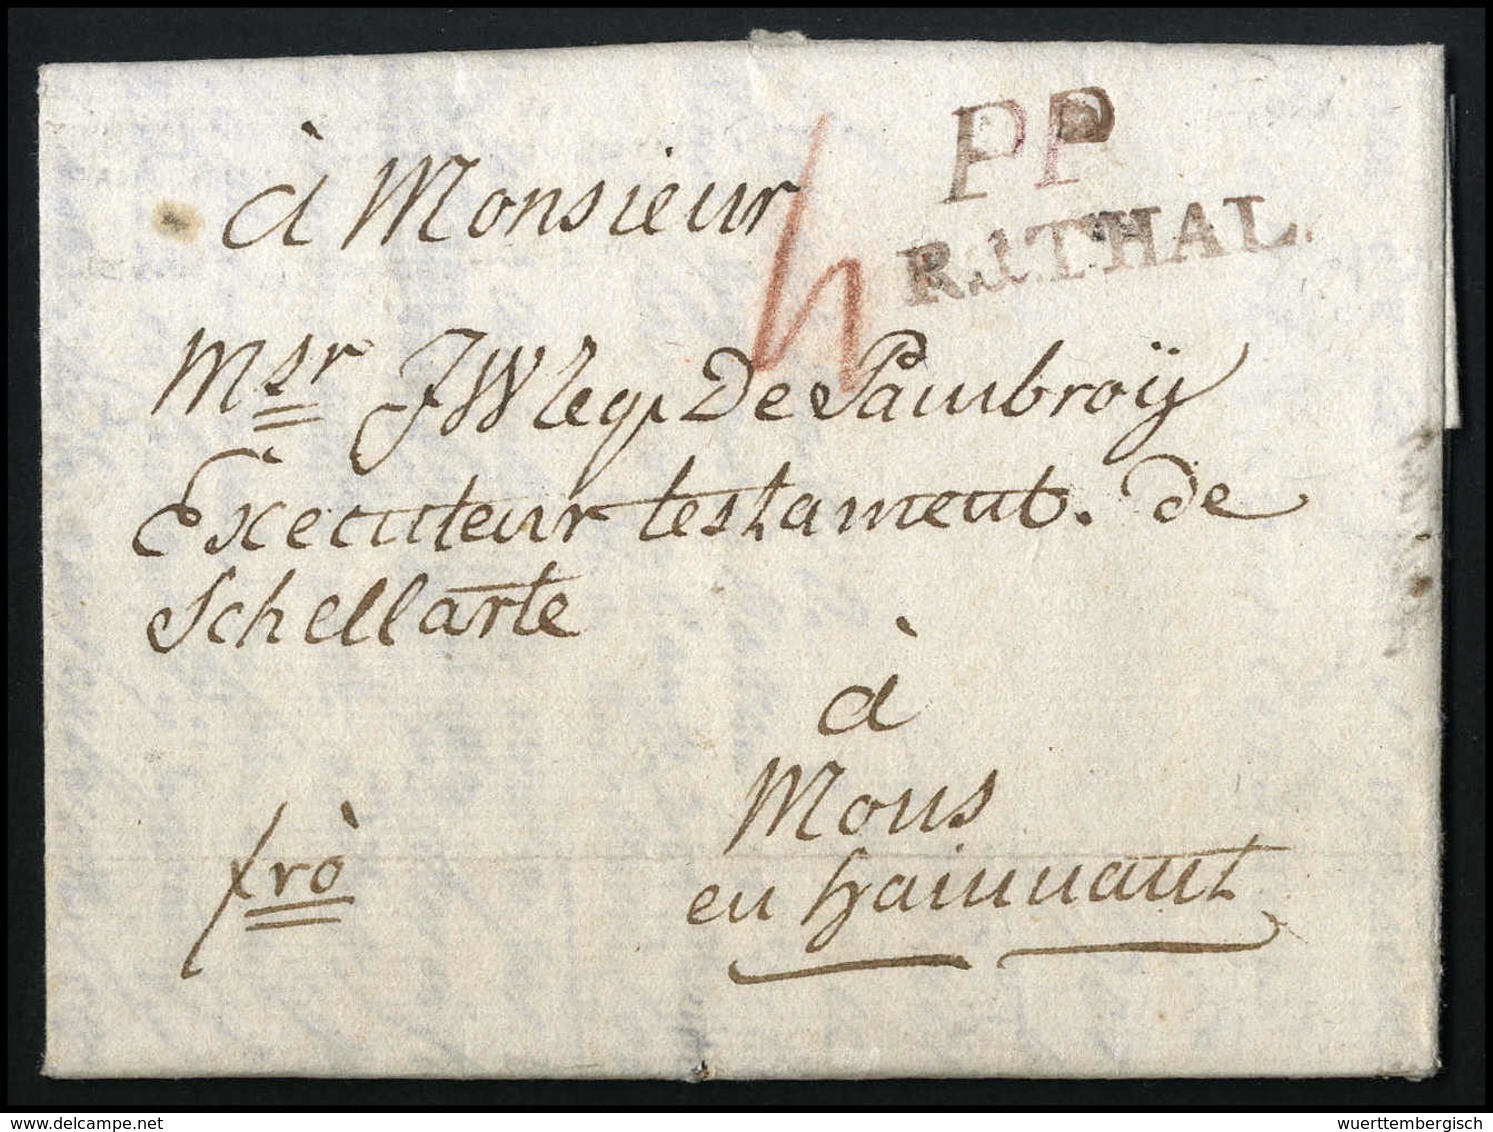 PP
R.1THAL.
à Monsieur
Msr JW leg. De Paînbroÿ
Executeur testament. de
Schellarte
à
Mons
en hainnaut
frò
wuerttembergisch